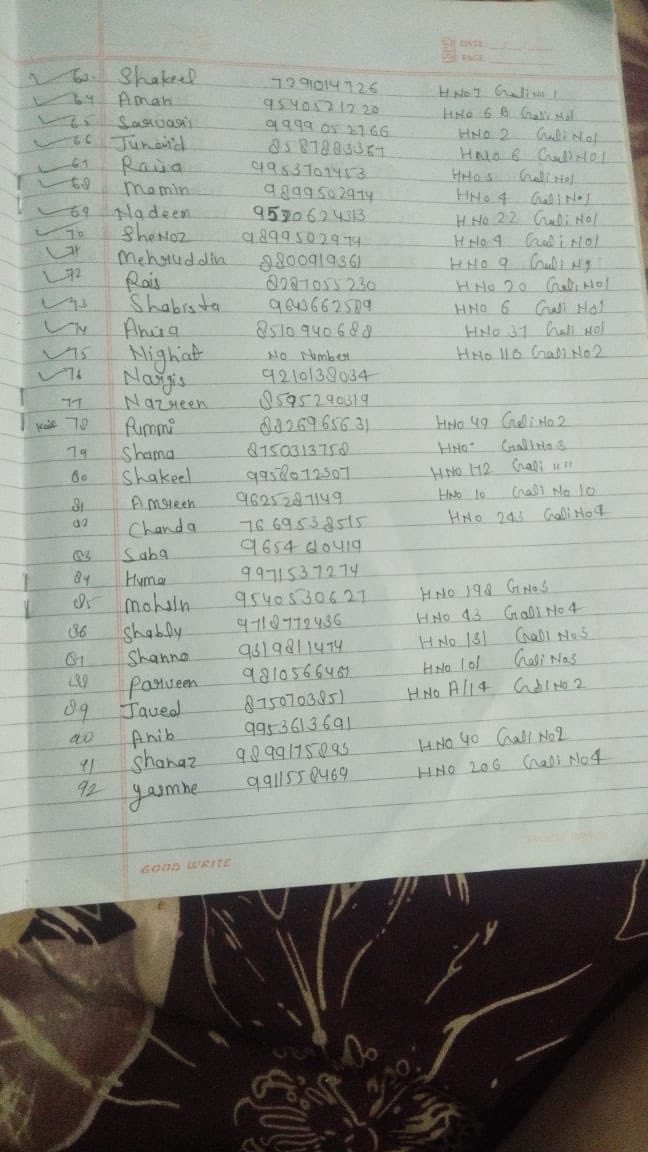 DATE
PAGE
63. Shakeel 7291014726 HNO 7 Gali No 1
64 Aman 9540521220 HNO 6 B Gali No1
65 Sarvari 9999052766 HNO 2 Gali No1
66 Junaid 8587883367 HNO 6 Gali NO1
67 Raisa 9953701453 HNO 5 Gali No1
68 Momin 9899502974 HNO 4 Gali No1
69 Nadeem 9520624313 HNO 22 Gali No1
70 SheNoz 9899502974 HNO 4 Gali NO1
71 Mehruddin 8800919361 HNO 9 Gali No
72 Rais 8287055230 HNO 20 Gali No1
73 Shabista 9643662589 HNO 6 Gali No1
74 Anisa 8510940688 HNO 37 Gali No1
75 Nighat No Number HNO 110 Gali No 2
76 Nargis 9210138034
77 Nazreen 8595290319
78 Pummi 8826965631 HNO 49 Gali No 2
79 Shama 8750313758 HNO Gali No 3
80 Shakeel 9958072307 HNO 172 Gali 11 11
81 Amreen 9625287149 HNO 10 Gali No 10
82 Chanda 7669538515 HNO 243 Gali No 4
83 Saba 9654620419
84 Huma 9971537274
85 Mohsin 9540530627 HNO 198 GNo3
86 Shably 9718772436 HNO 43 Gali No 4
87 Shanno 9319811474 HNO 131 Gali No3
88 Parveen 9810566467 HNO 101 Gali No3
89 Javed 8750703851 HNO A/14 Gali No 2
90 Anib 9953613691
91 Shanaz 9899175893 HNO 40 Gali No2
92 Yasmne 9911558469 HNO 206 Gali No 4
GOOD WRITE